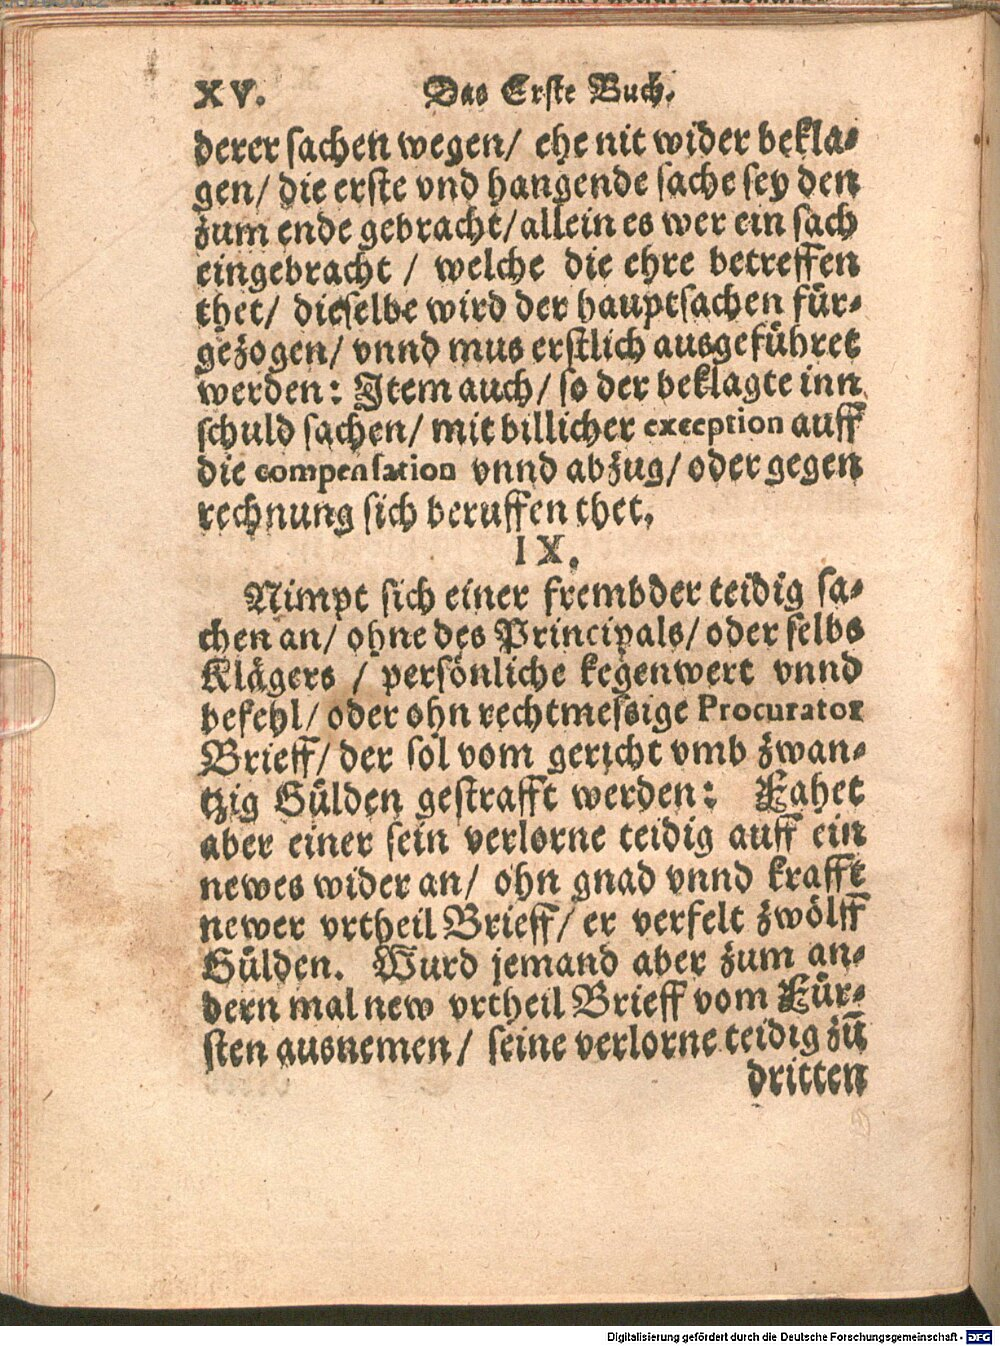 XV. Das Erste Buch.
derer sachen wegen/ ehe nit wider bekla-
gen/ die erste vnd hangende sache sey den
zum ende gebracht/ allein es wer ein sach
eingebracht / welche die ehre betreffen
thet/ dieselbe wird der hauptsachen für-
gezogen/ vnnd mus erstlich ausgeführet
werden: Item auch/ so der beklagte inn
schuld sachen/ mit billicher exception auff
die compensation vnnd abzug/ oder gegen
rechnung sich beruffen thet.
IX.
Nimpt sich einer frembder teidig sa-
chen an/ ohne des Principals/ oder selbs
Klägers / persönliche kegenwert vnnd
befehl/ oder ohn rechtmessige Procurator
Brieff/ der sol vom gericht vmb zwan-
tzig Gülden gestrafft werden: Fahet
aber einer sein verlorne teidig auff ein
newes wider an/ ohn gnad vnnd krafft
newer vrtheil Brieff/ er verfelt zwölff
Gülden. Wurd jemand aber zum an-
dern mal new vrtheil Brieff vom Für-
sten ausnemen/ seine verlorne teidig zū
dritten
Digitalisierung gefördert durch die Deutsche Forschungsgemeinschaft - DFG